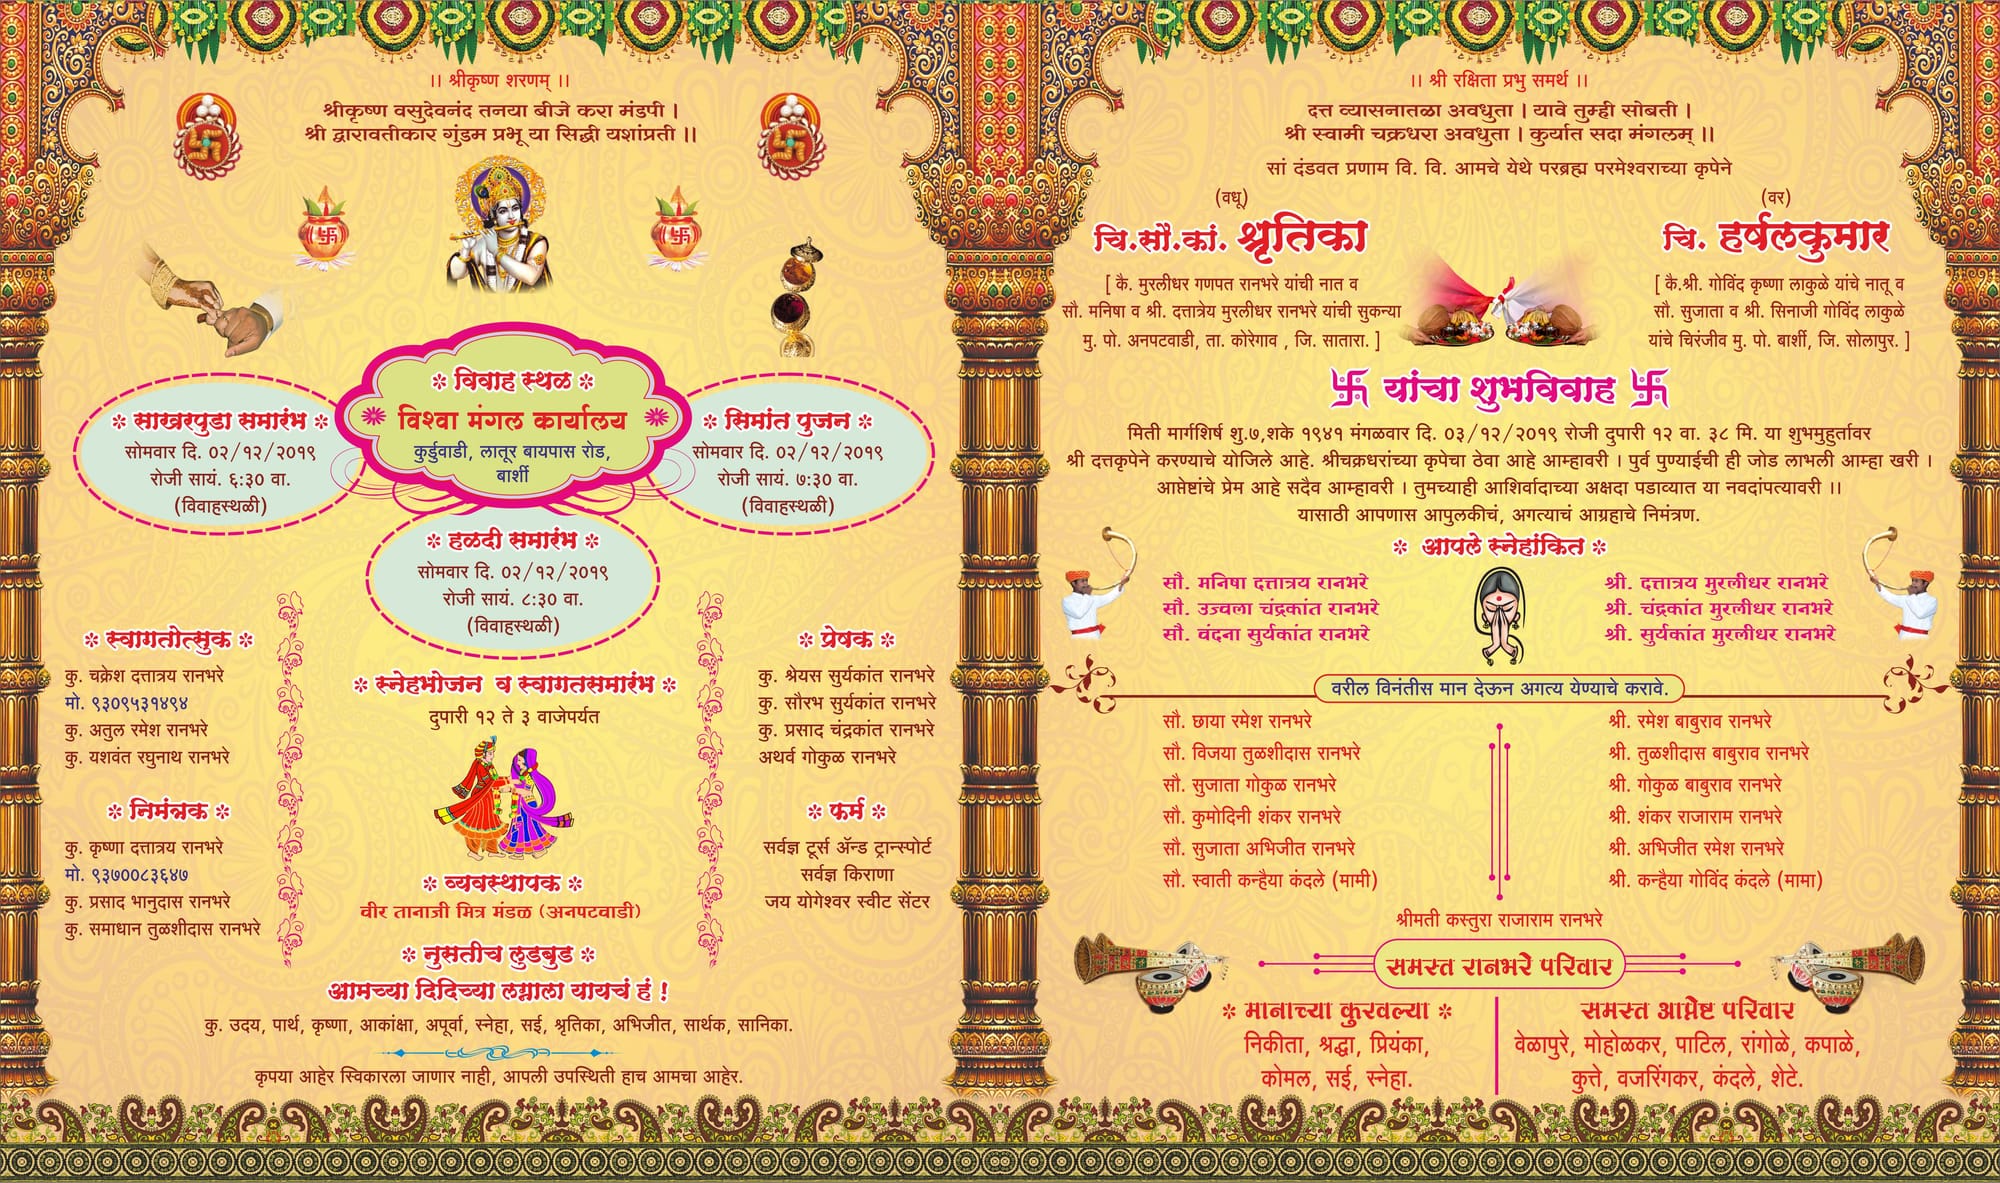 ।। श्रीकृष्ण शरणम् ।।
श्रीकृष्ण वसुदेवनंद तनया बीजे करा मंडपी ।
श्री द्वारावतीकार गुंडम प्रभू या सिद्धी यशांप्रती ।।
विवाह स्थळ
विश्वा मंगल कार्यालय
कुर्डुवाडी, लातूर बायपास रोड,
बार्शी
साखरपुडा समारंभ
सोमवार दि. ०२/१२/२०१९
रोजी सायं. ६:३० वा.
(विवाहस्थळी)
सिमांत पुजन
सोमवार दि. ०२/१२/२०१९
रोजी सायं. ७:३० वा.
(विवाहस्थळी)
हळदी समारंभ
सोमवार दि. ०२/१२/२०१९
रोजी सायं. ८:३० वा.
(विवाहस्थळी)
स्वागतोत्सुक
कु. चक्रेश दत्तात्रय रानभरे
मो. ९३०९५३१४९४
कु. अतुल रमेश रानभरे
कु. यशवंत रघुनाथ रानभरे
निमंत्रक
कु. कृष्णा दत्तात्रय रानभरे
मो. ९३७००८३६४७
कु. प्रसाद भानुदास रानभरे
कु. समाधान तुळशीदास रानभरे
स्नेहभोजन व स्वागतसमारंभ
दुपारी १२ ते ३ वाजेपर्यत
व्यवस्थापक
वीर तानाजी मित्र मंडळ (अनपटवाडी)
प्रेषक
कु. श्रेयस सुर्यकांत रानभरे
कु. सौरभ सुर्यकांत रानभरे
कु. प्रसाद चंद्रकांत रानभरे
अथर्व गोकुळ रानभरे
फर्म
सर्वज्ञ टूर्स ॲन्ड ट्रान्स्पोर्ट
सर्वज्ञ किराणा
जय योगेश्वर स्वीट सेंटर
नुसतीच लुडबुड
आमच्या दिदिच्या लग्नाला यायचं हं !
कु. उदय, पार्थ, कृष्णा, आकांक्षा, अपूर्वा, स्नेहा, सई, श्रृतिका, अभिजीत, सार्थक, सानिका.
कृपया आहेर स्विकारला जाणार नाही, आपली उपस्थिती हाच आमचा आहेर.
।। श्री रक्षिता प्रभु समर्थ ।।
दत्त व्यासनातळा अवधुता । यावे तुम्ही सोबती ।
श्री स्वामी चक्रधरा अवधुता । कुर्यात सदा मंगलम् ।।
सां दंडवत प्रणाम वि. वि. आमचे येथे परब्रह्म परमेश्वराच्या कृपेने
(वधू)
चि.सौ.कां. श्रृतिका
[ कै. मुरलीधर गणपत रानभरे यांची नात व
सौ. मनिषा व श्री. दत्तात्रेय मुरलीधर रानभरे यांची सुकन्या
मु. पो. अनपटवाडी, ता. कोरेगाव , जि. सातारा. ]
(वर)
चि. हर्षलकुमार
[ कै.श्री. गोविंद कृष्णा लाकुळे यांचे नातू व
सौ. सुजाता व श्री. सिनाजी गोविंद लाकुळे
यांचे चिरंजीव मु. पो. बार्शी, जि. सोलापुर. ]
卐 यांचा शुभविवाह 卐
मिती मार्गशिर्ष शु.७,शके १९४१ मंगळवार दि. ०३/१२/२०१९ रोजी दुपारी १२ वा. ३८ मि. या शुभमुहुर्तावर
श्री दत्तकृपेने करण्याचे योजिले आहे. श्रीचक्रधरांच्या कृपेचा ठेवा आहे आम्हावरी । पुर्व पुण्याईची ही जोड लाभली आम्हा खरी ।
आप्तेष्टांचे प्रेम आहे सदैव आम्हावरी । तुमच्याही आशिर्वादाच्या अक्षदा पडाव्यात या नवदांपत्यावरी ।।
यासाठी आपणास आपुलकीचं, अगत्याचं आग्रहाचे निमंत्रण.
आपले स्नेहांकित
सौ. मनिषा दत्तात्रय रानभरे
श्री. दत्तात्रय मुरलीधर रानभरे
सौ. उज्वला चंद्रकांत रानभरे
श्री. चंद्रकांत मुरलीधर रानभरे
सौ. वंदना सुर्यकांत रानभरे
श्री. सुर्यकांत मुरलीधर रानभरे
वरील विनंतीस मान देऊन अगत्य येण्याचे करावे.
सौ. छाया रमेश रानभरे
श्री. रमेश बाबुराव रानभरे
सौ. विजया तुळशीदास रानभरे
श्री. तुळशीदास बाबुराव रानभरे
सौ. सुजाता गोकुळ रानभरे
श्री. गोकुळ बाबुराव रानभरे
सौ. कुमोदिनी शंकर रानभरे
श्री. शंकर राजाराम रानभरे
सौ. सुजाता अभिजीत रानभरे
श्री. अभिजीत रमेश रानभरे
सौ. स्वाती कन्हैया कंदले (मामी)
श्री. कन्हैया गोविंद कंदले (मामा)
श्रीमती कस्तुरा राजाराम रानभरे
समस्त रानभरे परिवार
मानाच्या कुरवल्या
निकीता, श्रद्धा, प्रियंका,
कोमल, सई, स्नेहा.
समस्त आप्तेष्ट परिवार
वेळापुरे, मोहोळकर, पाटिल, रांगोळे, कपाळे,
कुत्ते, वजरिंगकर, कंदले, शेटे.